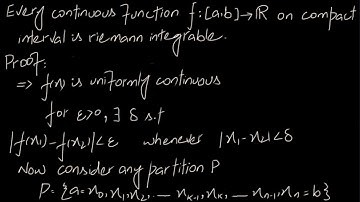 Every continuous function f:[a,b]→ℝ on compact
interval is riemann integrable.
Proof:
⇒ f(x) is uniformly continuous
for ε>0, ∃ δ s.t
|f(x₁)-f(x₂)|<ε whenever |x₁-x₂|<δ
Now consider any partition P
P={a=x₀,x₁,x₂,—x_{k-1},x_k,—x_{n-1},x_n=b}